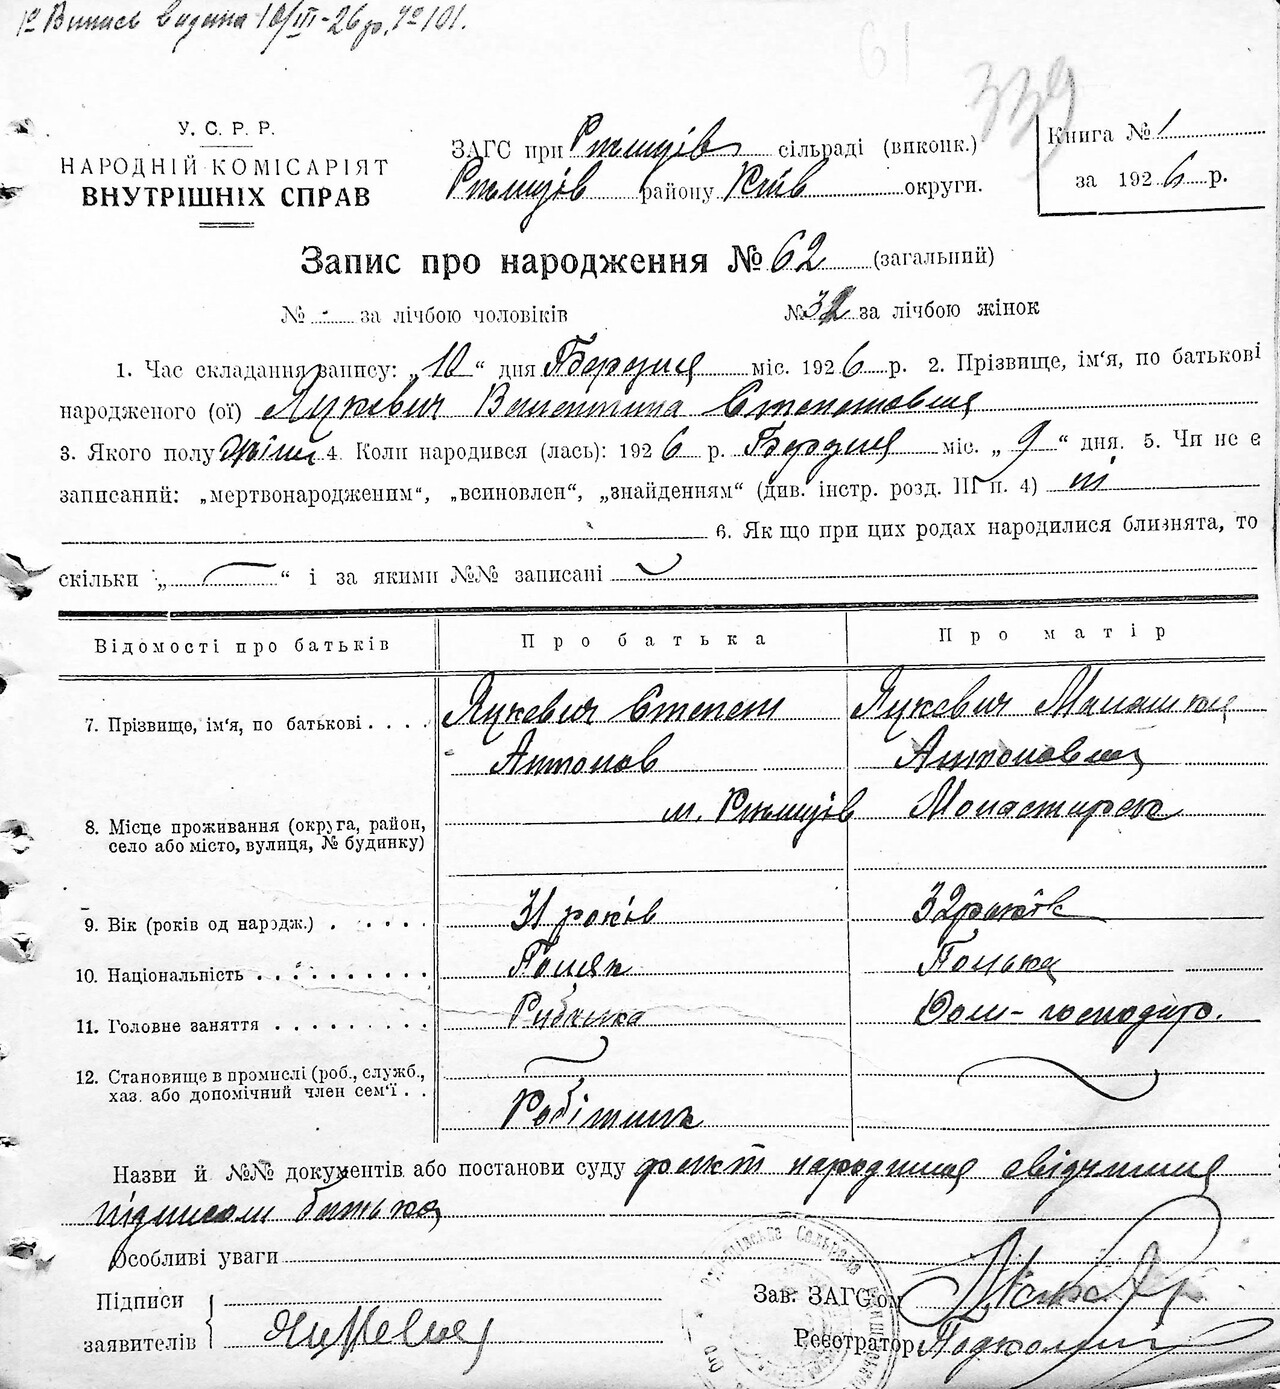 1º Випись видана 10/III-26 р. № 101.
61
339
У. С. Р. Р.
НАРОДНІЙ КОМІСАРІЯТ
ВНУТРІШНІХ СПРАВ
ЗАГС при Ржищів сільраді (виконк.)
Ржищів району Київ округи.
Книга № 1
за 1926 р.
Запис про народження № 62 (загальний)
№ - за лічбою чоловіків № 32 за лічбою жінок
1. Час складання запису: „10“ дня Березня міс. 1926 р. 2. Прізвище, ім‘я, по батькові
народженого (ої) Яцкевич Валентина Степановна
3. Якого полу жіноч 4. Коли народився (лась): 1926 р. Березня міс. „9“ дня. 5. Чи не є
записаний: „мертвонародженим“, „всиновлен“, „знайденням“ (див. інстр. розд. III п. 4) ні
6. Як що при цих родах народилися близнята, то
скільки „ — “ і за якими №№ записані
Відомості про батьків Про батька Про матір
7. Прізвище, ім‘я, по батькові . . . . Яцкевич Степан Яцкевич
Антонов Антоновна
8. Місце проживання (округа, район,
село або місто, вулиця, № будинку)
м. Ржищів Монастирек
9. Вік (років од народж.) . . . . . 31 років 32 років
10. Національність . . . . . . . . . . Поляк Полька
11. Головне заняття . . . . . . . . . Рибалка Дом-господар.
12. Становище в промислі (роб., служб.,
хаз. або допомічний член сем‘ї . .
Робітник
Назви й №№ документів або постанови суду факт народження свідчения
підписом батька
Особливі уваги
Підписи
заявителів Яцкевич
Зав. ЗАГСом
Реєстратор